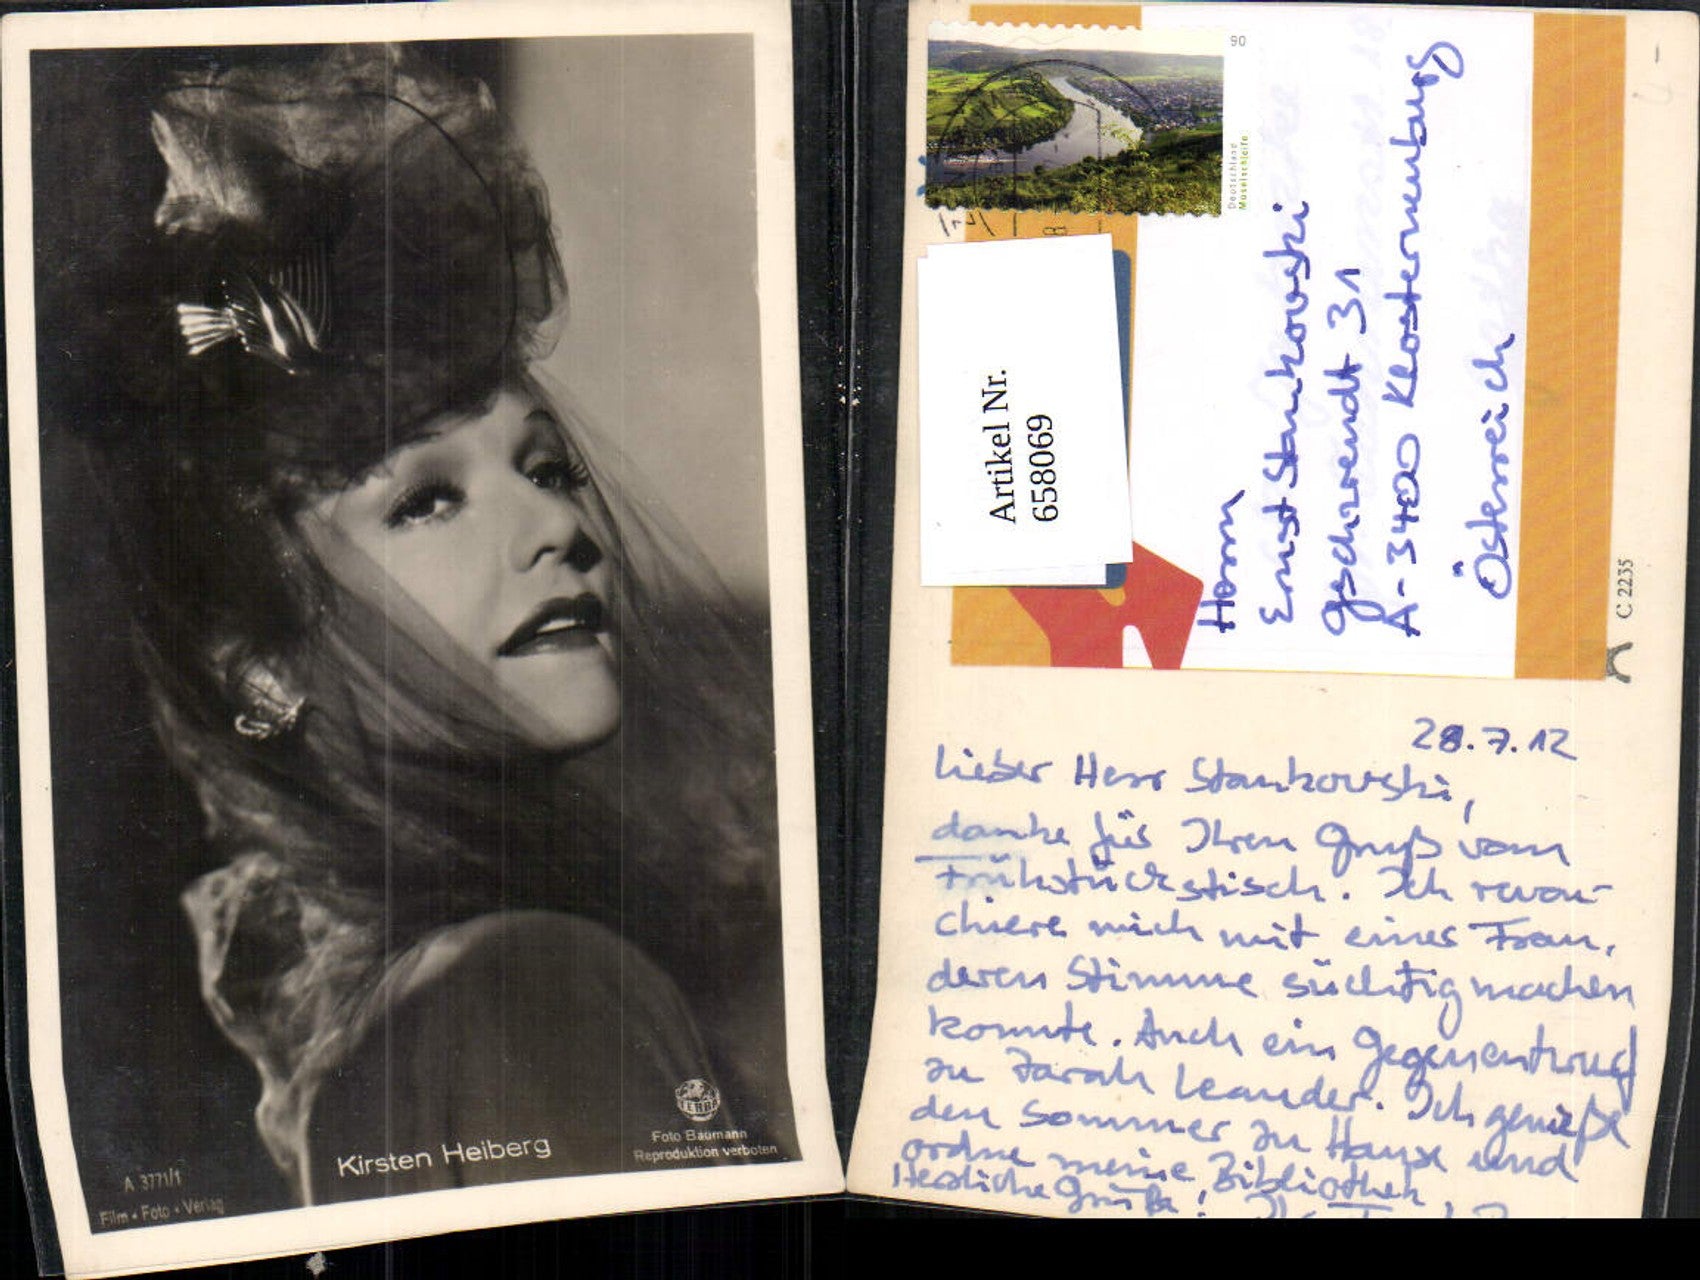 TERRA
Foto Baumann
Reproduktion verboten
Kirsten Heiberg
A 3771/1
Film • Foto • Verlag
90
Deutschland
Moselschleife
Artikel Nr.
658069
Herrn
Ernst Stankovski
Gschwendt 31
A-3400 Klosterneuburg
Österreich
C 2235
28.7.12
Lieber Herr Stankovski,
danke für Ihren Gruß vom
Frühstückstisch. Ich revan-
chiere mich mit einer Frau,
deren Stimme süchtig machen
konnte. Auch ein Gegenentwurf
zu Zarah Leander. Ich genieße
den Sommer zu Hause und
ordne meine Bibliothek.
Herzliche Grüße! Ihr